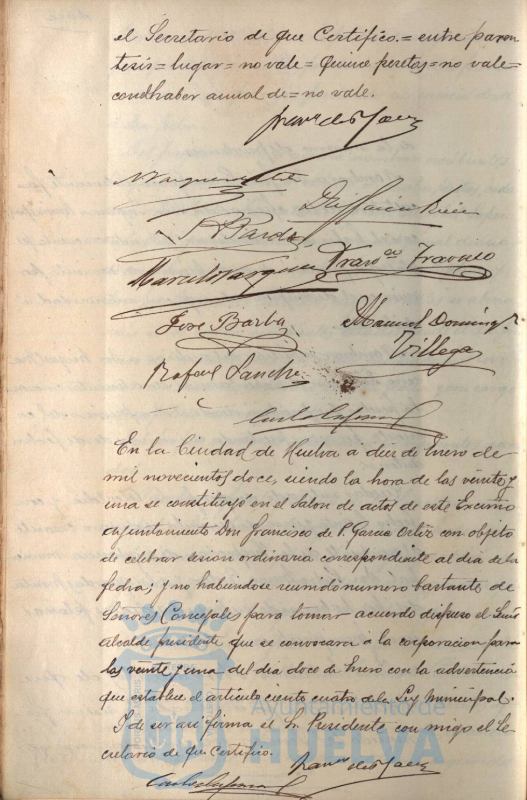 el Secretario de que Certifico. = entre paren
tesis = lugar = no vale = Quince pesetas = no vale =
cond haber anual de = no vale.
Jose Barba
Manuel Doming.z
Villega
Rafael Sanche
En la Ciudad de Huelva a diez de Enero de
mil novecientos doce, siendo la hora de las veinte y
una se constituyó en el Salon de actos de este Excmo
Ayuntamiento Don Francisco de P. Garcia Ortiz con objeto
de celebrar sesion ordinaria correspondiente al dia de la
fecha; y no habiendose reunido numero bastante de
Señores Concejales para tomar acuerdo dispuso el Señor
Alcalde presidente que se convocara a la corporacion para
las veinte y una del dia doce de Enero con la advertencia
que establece el articulo ciento cuatro de la Ley Municipal.
Y de ser asi firma el Sr. Presidente con migo el Se
cretario de que Certifico.
Ayuntamiento de
HUELVA